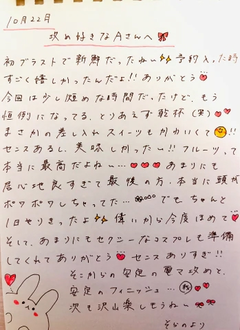 10月22日
攻め好きなAさんへ
初ブラストで新鮮だったねー 予約入った時
すごく嬉しかったんだよ!! ありがとう
今回は少し短めな時間だったけど、もう
恒例になってる、とりあえず乾杯(笑)
まさかの差し入れスイーツもかわいくて
センスあるし、美味しかったー!! フルーツって
本当に最高だよねー あまりにも
居心地良すぎて最後の方、本当に頭が
ポワポワしちゃって… でもちゃんと
1日やりきったよ 偉いから今度ほめて
そして、あまりにもセクシーなコスプレも準備
してくれてありがとう センスありすぎ!!
そこからの安定の 攻めで、
安定のフィニッシュ…
次も沢山楽しもうねー
より